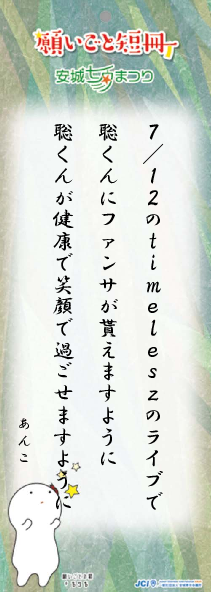 願いごと短冊
安城七夕まつり
7/12のtimeleszのライブで
聡くんにファンサが貰えますように
聡くんが健康で笑顔で過ごせますように
あんこ
JCI